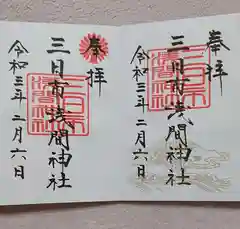 奉拝
三日市浅間神社
令和三年二月六日
奉拝
三日市浅間神社
令和三年二月六日